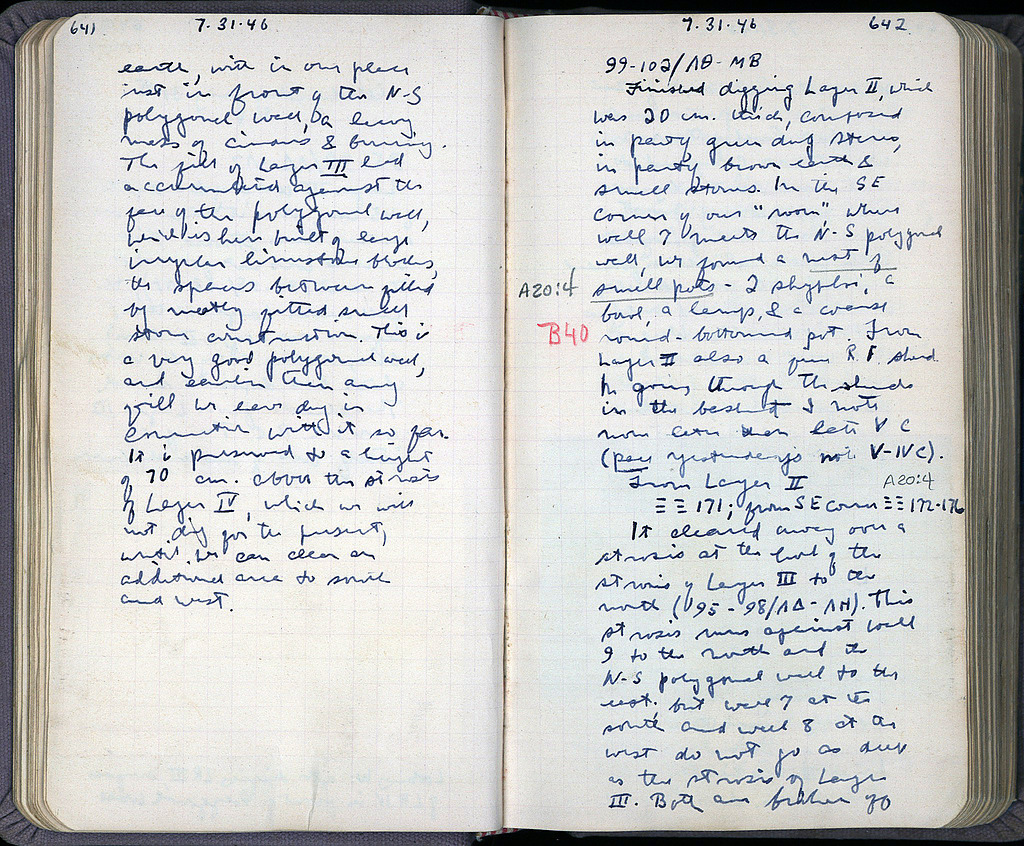 641 7.31.46
earth, with in one place
just in front of the N-S
polygonal wall, a heavy
mass of cinders & burning.
The fill of Layer III had
accumulated against the
face of the polygonal wall,
which is here built of large
irregular limestone blocks,
the spaces between filled
by neatly fitted small
stone construction. This is
a very good polygonal wall,
and earlier than any
fill we have dug in
connection with it so far.
It is preserved to a height
of 70 cm. above the strosis
of Layer IV, which we will
not dig for the present,
until we can clear an
additional area to south
and west.
7.31.46 642
99-102/ΛΘ-ΜΒ
Finished digging Layer II, which
was 20 cm. thick, composed
in part of green dug stereo,
in part of brown earth &
small stones. In the SE
corner of our "room", where
wall 7 meets the N-S polygonal
wall, we found a nest of
A20:4 small pots - 2 skyphoi, a
bowl, a lamp, & a coarse
B40 round-bottomed pot. From
Layer II also a fine R.F. sherd.
In going through the sherds
in the basket I note
none later than late V C
(pace yesterday's note V-IV C).
From Layer II A20:4
ΞΞ 171; from SE corner ΞΞ 172-176
It cleared away over a
strosis at the level of the
strosis of Layer III to the
north (95-98/ΛΔ-ΛΗ). This
strosis runs against wall
9 to the north and the
N-S polygonal wall to the
east; but wall 7 at the
south and wall 8 at the
west do not go as deep
as the strosis of Layer
III. Both are broken off